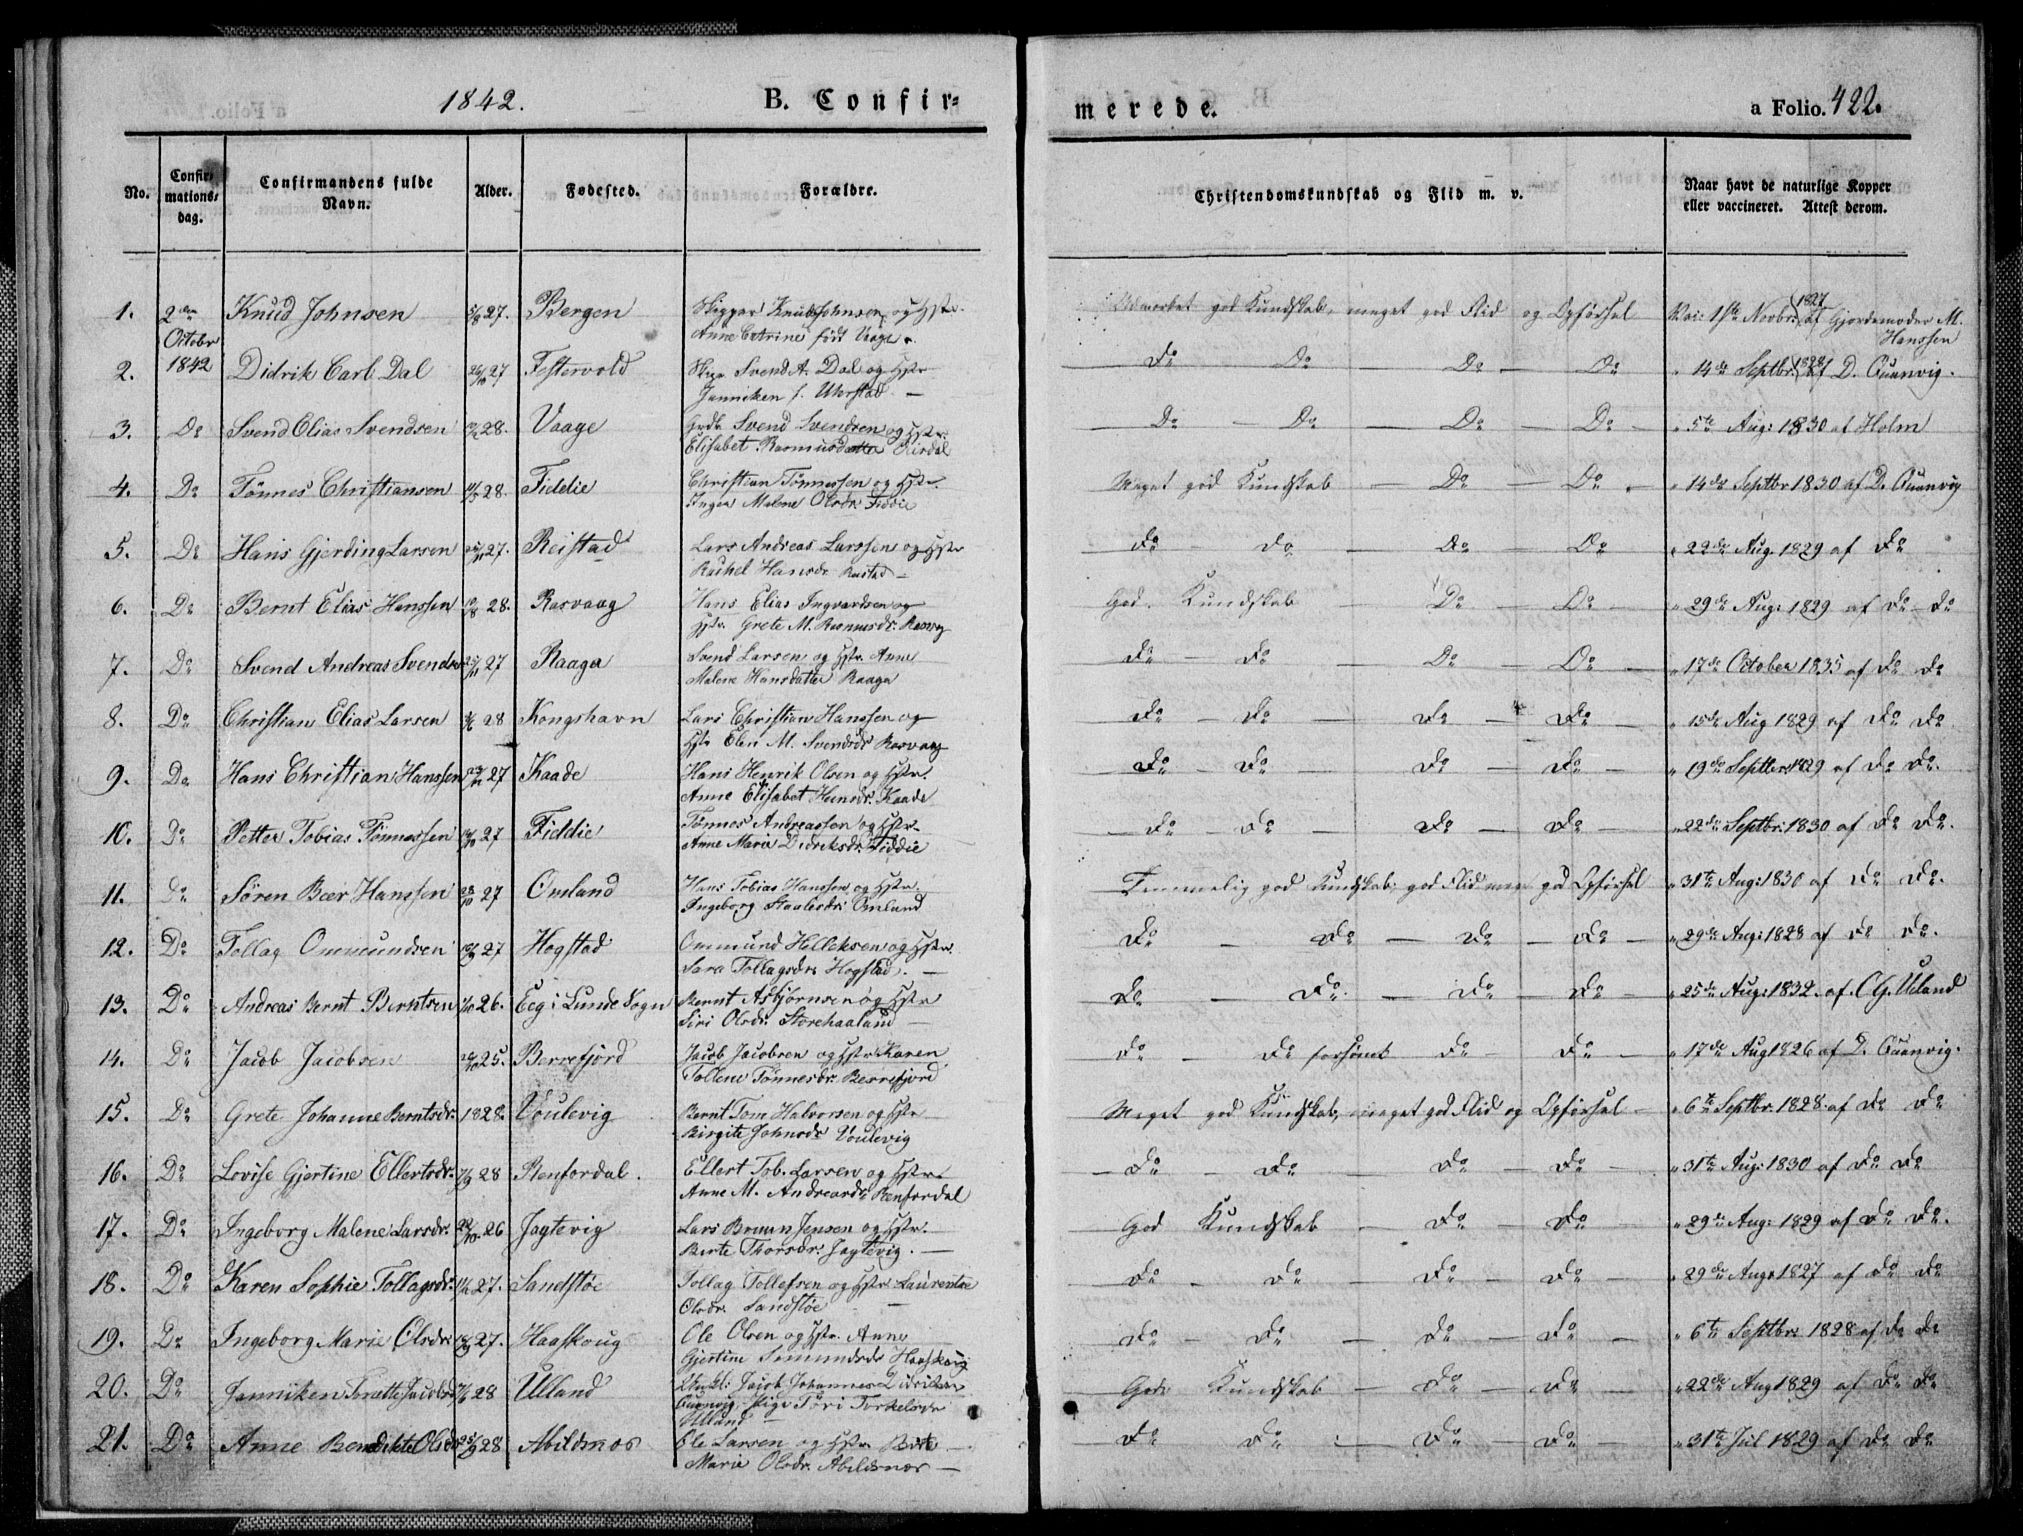 1842.
B. Confir-
merede.
a Folio. 422.
No.
Confir-
mations-
dag.
Confirmandens fulde
Navn.
Alder.
Fødested.
Forældre.
Christendomskundskab og Flid m. v.
Naar havt de naturlige Kopper
eller vaccineret. Attest derom.
1. 2den Knud Johnsen 27. Bergen
October
Anne Catrine født Vaage
Udmerket god Kundskab, meget god Flid og Opførsel
1ste Novbr: 1827 af Gjordemoder M.
Hanssen
2. 1842 Didrik Carl Dal 27 Festervold Svend A. Dal og Hstr
Janniken f. Uhrstad
Do Do Do Do
14de Septbr: af D. Quanvig.
3. Do Svend Elias Svendsen 28. Vaage Svend Svendsen og Hstr.
Elisabet Rasmusdatter
Do Do Do Do
5te Aug: 1830 af Holm
4. Do Tönnes Christiansen 28. Fiddie Christian Tönnessen og Hstr.
Inger Malene Olsdr. Fiddie
Meget god Kundskab Do Do
14de Septbr 1830 af D. Quanvig
5. Do Hans Gjerding Larsen 27. Reistad Lars Andreas Larssen og Hstr
Rachel Hansdr.
Do Do Do Do
22de Aug. 1829 af Do
6. Do Bernt Elias Hanssen 28. Rasvaag Hans Elias Ingvardsen og
Hstr. Grete M. Rasmusdr. Rasvag
God Kundskab Do Do
29de Aug: 1829 af Do Do
7. Do Svend Andreas Svends 27 Raaga Svend Larsen og Hstr. Anne
Malene Hansdatter Raaga
Do Do Do Do
17de October 1835 af Do Do
8. Do Christian Elias Larsen 28 Kongshavn Lars Christian Hanssen og
Hstr Elen M. Svendsdr Rasvaag
Do Do Do Do
15de Aug 1829 af Do Do
9. Do Hans Christian Hanssen 27 Kaade Hans Henrik Olsen og Hstr.
Anne Elisabet Hansdr. Kaade
Do Do Do Do
19de Septbr 1829 af Do Do.
10. Do Petter Tobias Tönnessen 27 Fiddie Tönnes Andreassen og Hstr.
Anne Marie Didriksdr. Fiddie
Do Do Do Do
22de Septbr: 1830 af Do Do.
11. Do Sören Beer Hanssen 28/10 27 Omland Hans Tobias Hanssen og Hstr.
Ingeborg Omland
Temmelig god Kundskab, god Flid god Opførsel
31te Aug: 1830 af Do Do.
12. Do Tollag Ommundsen 27 Hogstad Ommund Helleksen og Hstr.
Sara Tollagsdr. Hogstad.
Do Do Do Do
29de Aug: 1828 af Do Do.
13. Do Andreas Bernt Berntsen 26. Eeg i Lunde Sogn Bernt Asbjörnsen og Hstr
Siri Olsdr. Storehaaland
Do Do Do Do
25de Aug: 1832. af C G. Ueland
14. Do Jacob Jacobsen 25. Berrefjord Jacob Jacobsen og Hstr Karen
Tollene Tönnesdr. Berrefjord
Do Do forsömt Do Do
17de Aug 1826 af D. Quanvig.
15. Do Grete Johanne Berntsdr. 1828. Voulevig Bernt Tom Halvorsen og Hstr
Birgite Johnsdr Voulevig
Meget god Kundskab, meget god Flid og Opførsel
6te Septbr. 1828 af Do Do
16. Do Lovise Gjertine Ellertsdr. 28 Renfordal. Ellert Tob. Larsen og Hstr.
Anne M. Andreasdr. Renfordal
Do Do Do Do
31te Aug: 1830 af Do Do
17. Do Ingeborg Malene Larsdr. 26 Jagtevig Lars Bruun Jensen og Hstr.
Berte Thorsdr. Jagtevig.
God Kundskab Do Do
29de Aug: 1829 af Do Do.
18. Do Karen Sophie Tollagsdr. 27. Sandstöe Tollag Tollefsen og Hstr Laurentse
Olsdr. Sandstöe
Do Do Do Do
29de Aug: 1827 af Do Do
19. Do Ingeborg Marie Olsdr. 27. Haaskoug Ole Olsen og Hstr. Anne
Gjertine Haaskoug
Do Do Do Do
6te Septbr: 1828 af Do Do
20. Do Janniken 28 Ulland Jacob Johannes Didriksen
Quanvig. Pige Töri Torkelsdr
Ulland
Gode Kundskab Do Do
22de Aug 1829 af Do Do
21. Do Anne Bendikte Olsdr 28 Abildsnes Ole Larsen og Hstr. Birte
Marie Olsdr. Abildsnes
Do Do Do Do
31te Jul 1829 af Do Do